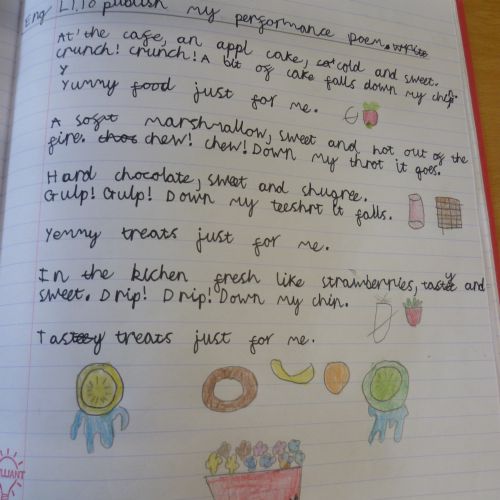 Eng L1. To publish my performance poem.
At the cafe, an appl cake, cold and sweet.
crunch! crunch! A bit of cake falls down my chin.
Yummy food just for me.
A soft marshmallow, sweet and hot out of the
fire. chew! chew! Down my throt it goes.
Hard chocolate, sweet and shugree.
Gulp! Gulp! Down my teeshrt it falls.
Yemmy treats just for me.
In the kichen fresh like strawberries, tastey and
sweet. Drip! Drip! Down my chin.
Tastey treats just for me.